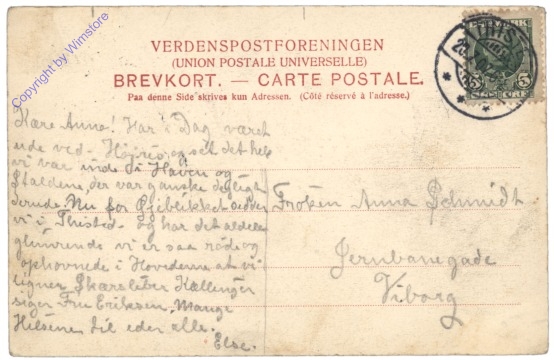 Copyright by Wimstore
VERDENSPOSTFORENINGEN
(UNION POSTALE UNIVERSELLE)
BREVKORT. — CARTE POSTALE.
Paa denne Side skrives kun Adressen. (Côté réservé à l'adresse.)
THIS
5 5
Kære Anna! Har i Dag været
ude ved og set det hele
vi var inde i Haven og
Staldene, der var ganske dejligt
derude. Nu for Øieblikket
vi i Thisted og har det aldeles
glimrende vi er saa røde og
ophovnede i Hovederne at vi
ligner Kællinger
siger Fru Eriksen. Mange
Hilsener til eder alle.
Else.
Frøken Anna Schmidt
Jernbanegade
Viborg